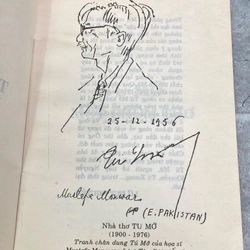 25-12-1956
Tú Mỡ
Mustafa Monwar
(E. PAKISTAN)
Nhà thơ TÚ MỠ
(1900 - 1976)
Tranh chân dung Tú Mỡ của họa sĩ